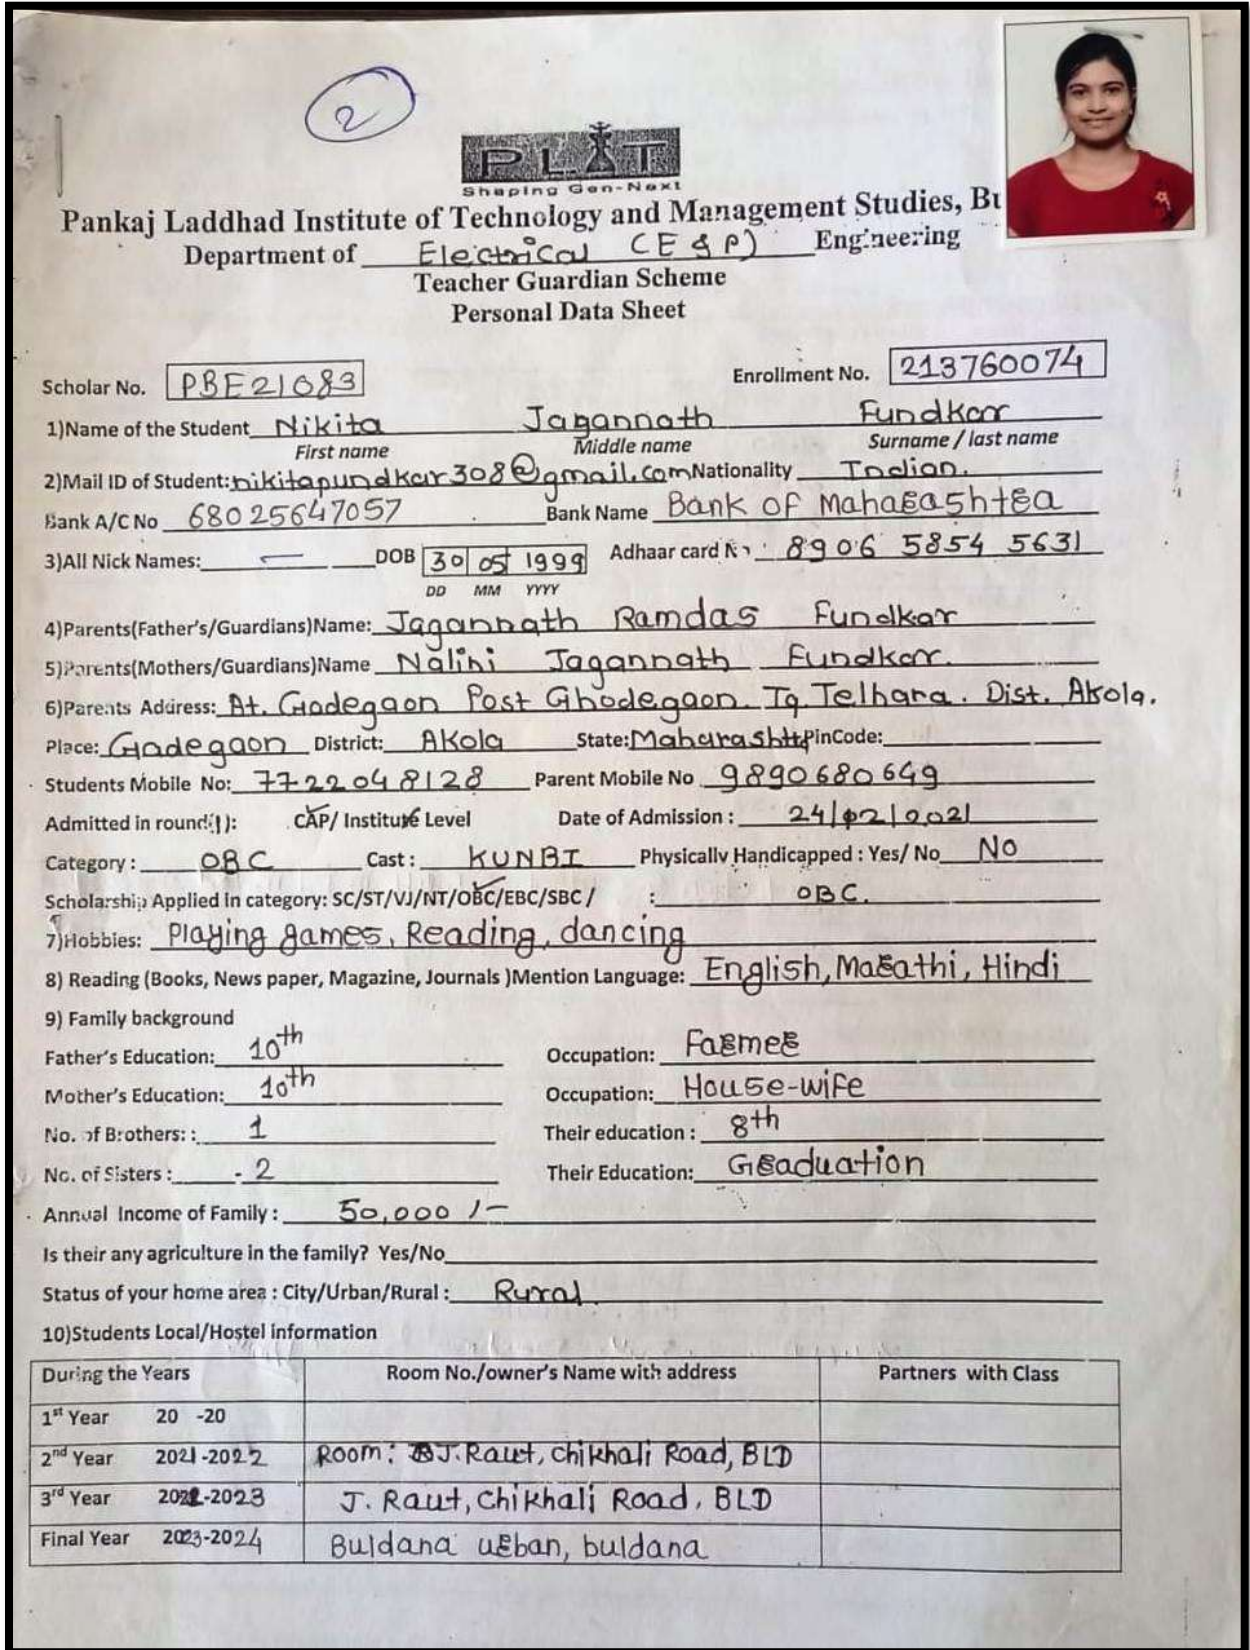 2
PLIT
Shaping Gen-Next
Pankaj Laddhad Institute of Technology and Management Studies, Bu
Department of Electrical (E & P) Engineering
Teacher Guardian Scheme
Personal Data Sheet
Scholar No. PBE21083 Enrollment No. 213760074
1)Name of the Student Nikita Jagannath Fundkar
First name Middle name Surname / last name
2)Mail ID of Student: nikitapundkar308@gmail.com Nationality Indian.
Bank A/C No 68025647057 Bank Name Bank OF Maharashtra
3)All Nick Names: — DOB 30 05 1999 Adhaar card No : 8906 5854 5631
DD MM YYYY
4)Parents(Father's/Guardians)Name: Jagannath Ramdas Fundkar
5)Parents(Mothers/Guardians)Name Nalini Jagannath Fundkar.
6)Parents Address: At. Gadegaon Post Ghodegaon Tq. Telhara. Dist. Akola.
Place: Gadegaon District: Akola State: Maharashtra PinCode:
Students Mobile No: 7722048128 Parent Mobile No 9890680649
Admitted in round(1): CAP/ Institute Level Date of Admission : 24/02/2021
Category : OBC Cast : KUNBI Physically Handicapped : Yes/ No No
Scholarship Applied in category: SC/ST/VJ/NT/OBC/EBC/SBC / : OBC.
7)Hobbies: Playing games, Reading, dancing
8) Reading (Books, News paper, Magazine, Journals )Mention Language: English, Marathi, Hindi
9) Family background
Father's Education: 10th Occupation: Farmer
Mother's Education: 10th Occupation: House-wife
No. of Brothers: : 1 Their education : 8th
No. of Sisters : - 2 Their Education: Graduation
Annual Income of Family : 50,000 /-
Is their any agriculture in the family? Yes/No
Status of your home area : City/Urban/Rural : Rural
10)Students Local/Hostel information
During the Years Room No./owner's Name with address Partners with Class
1st Year 20 -20
2nd Year 2021-2022 Room: J. Raut, Chikhali Road, BLD
3rd Year 2022-2023 J. Raut, Chikhali Road, BLD
Final Year 2023-2024 Buldana urban, buldana